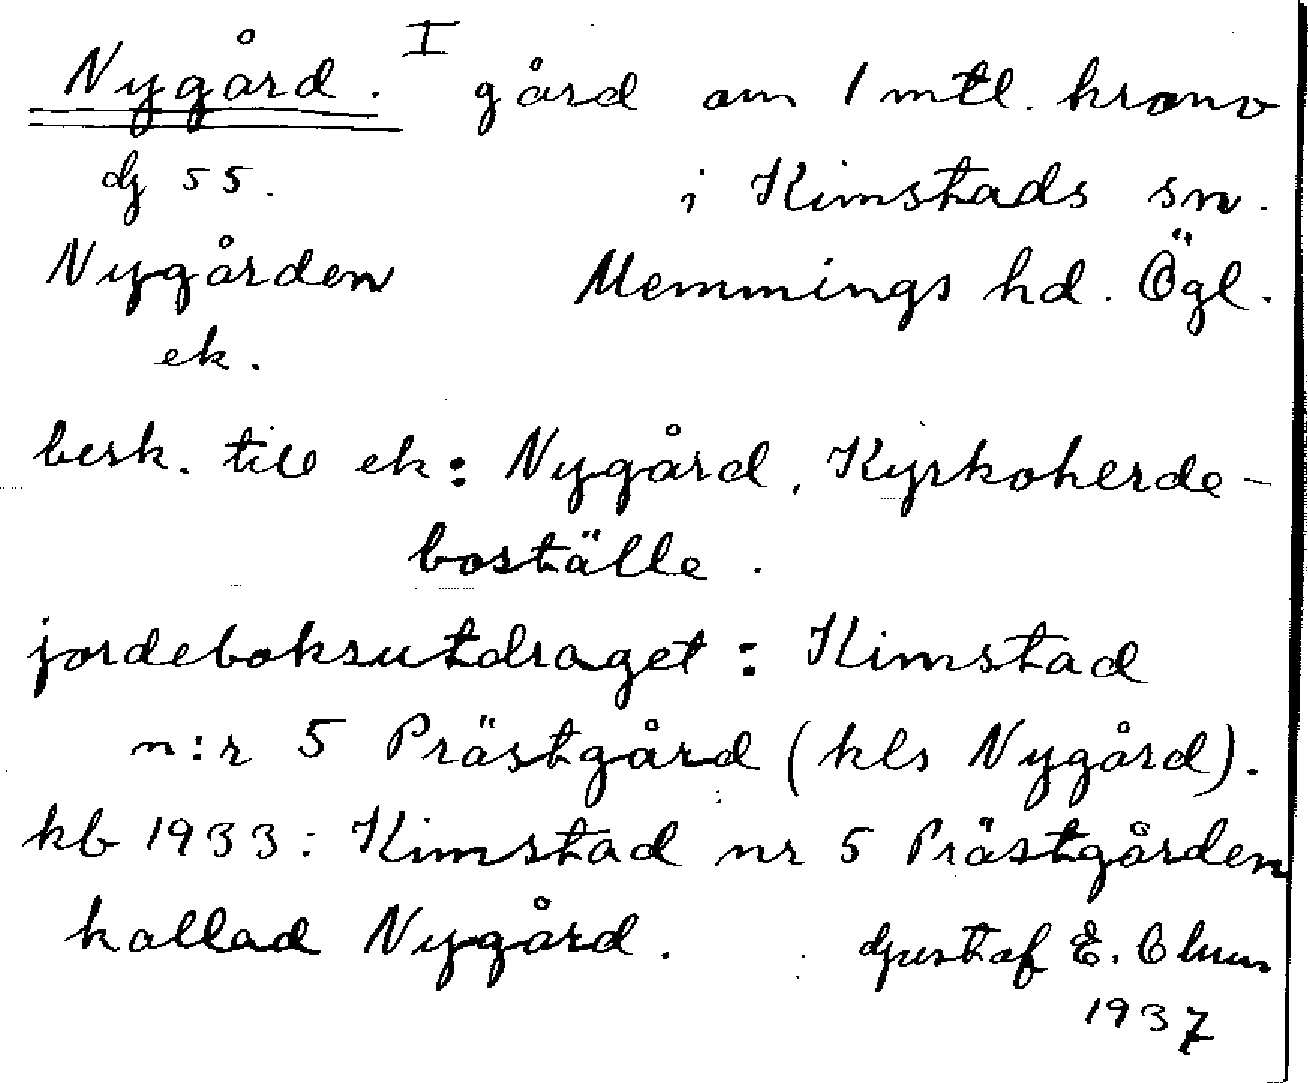 Nygård. I gård om 1 mtl. krono
dj 55. i Kimstads sn.
Nygården Memmings hd. Ögl.
ek.
besk. till ek: Nygård, Kyrkoherde-
boställe.
jordeboksutdraget: Kimstad
n:r 5 Prästgård (kls Nygård).
kb 1933: Kimstad nr 5 Prästgården
kallad Nygård. Gustaf E.
1937